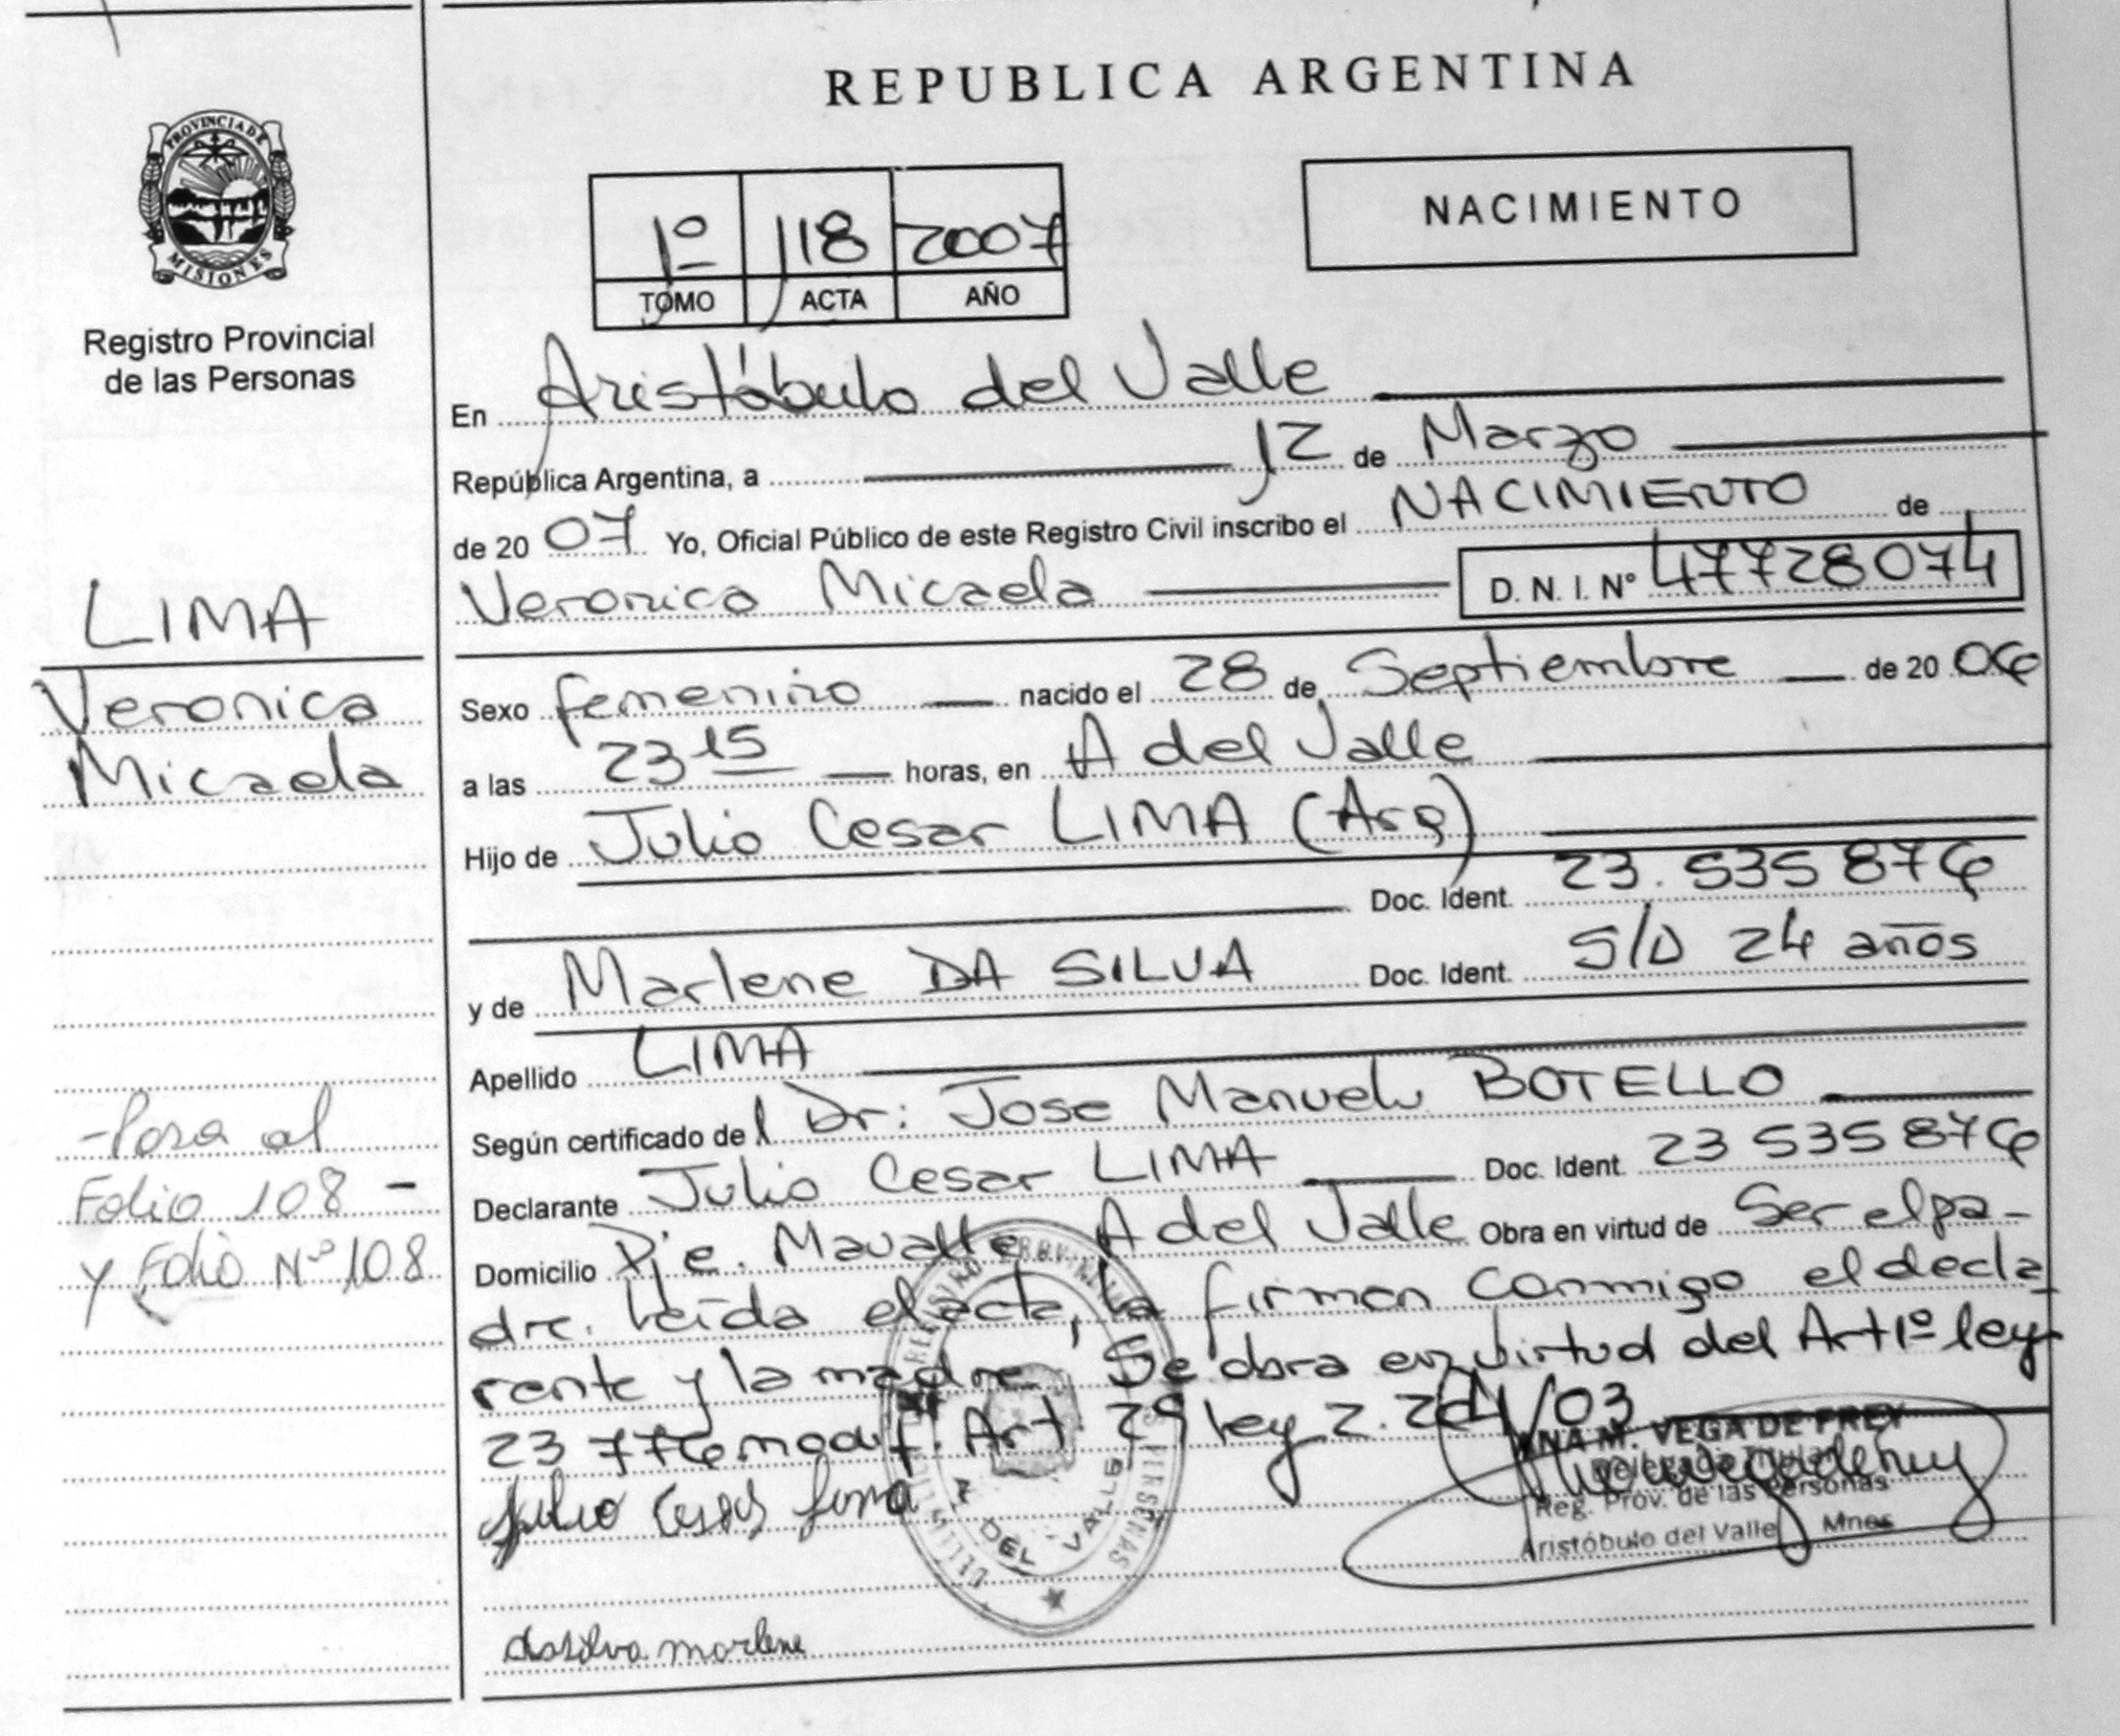 REPUBLICA ARGENTINA
PROVINCIA DE
MISIONES
Registro Provincial
de las Personas
NACIMIENTO
1º 118 2007
TOMO ACTA AÑO
En Aristóbulo del Valle
República Argentina, a 12 de Marzo
de 2007 Yo, Oficial Público de este Registro Civil inscribo el NACIMIENTO de
Veronica Micaela D. N. I. Nº 47728074
LIMA
Veronica
Micaela
Sexo femenino nacido el 28 de Septiembre de 20 06
a las 23 15 horas, en A del Valle
Hijo de Julio Cesar LIMA (Arg)
Doc. Ident. 23.535876
y de Marlene DA SILVA Doc. Ident. S/D 24 años
Apellido LIMA
Según certificado del Dr: Jose Manuel BOTELLO
Declarante Julio Cesar LIMA Doc. Ident. 23 535 876
Domicilio Pje. A del Valle Obra en virtud de Ser el pa-
dre. Leída el acta, la firman conmigo el decla
rante y la madre. Se obra en virtud del Art 1º ley
23 776 modif. Art 2º ley 2.204/03
-Pasa al
Folio 108 -
y Folio Nº 108
Julio Cesar Lima
ANA M. VEGA DE FREY
Delegada Titular
Reg. Prov. de las Personas
Aristóbulo del Valle Mnes
A DEL VALLE
dasilva marlene